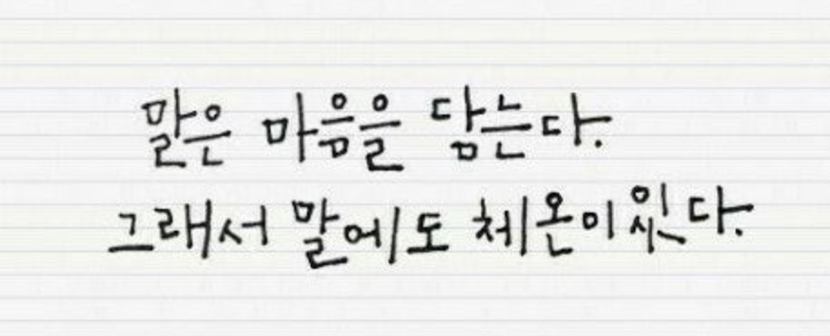 말은 마음을 담는다.
그래서 말에도 체온이 있다.